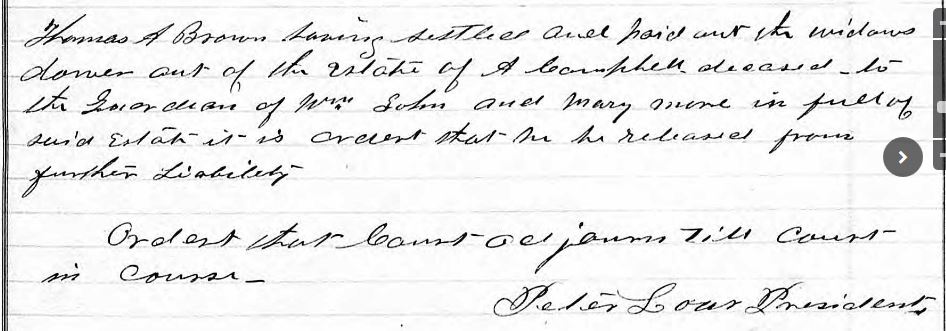 Thomas A Brown having settled and paid out the widows
dower out of the Estate of A Campbell deceased to
the Guardian of Wm John and Mary more in full of
said Estate it is ordert that he be released from
further Liability
Ordert that Court adjourn till Court
in course
Peter Lour President